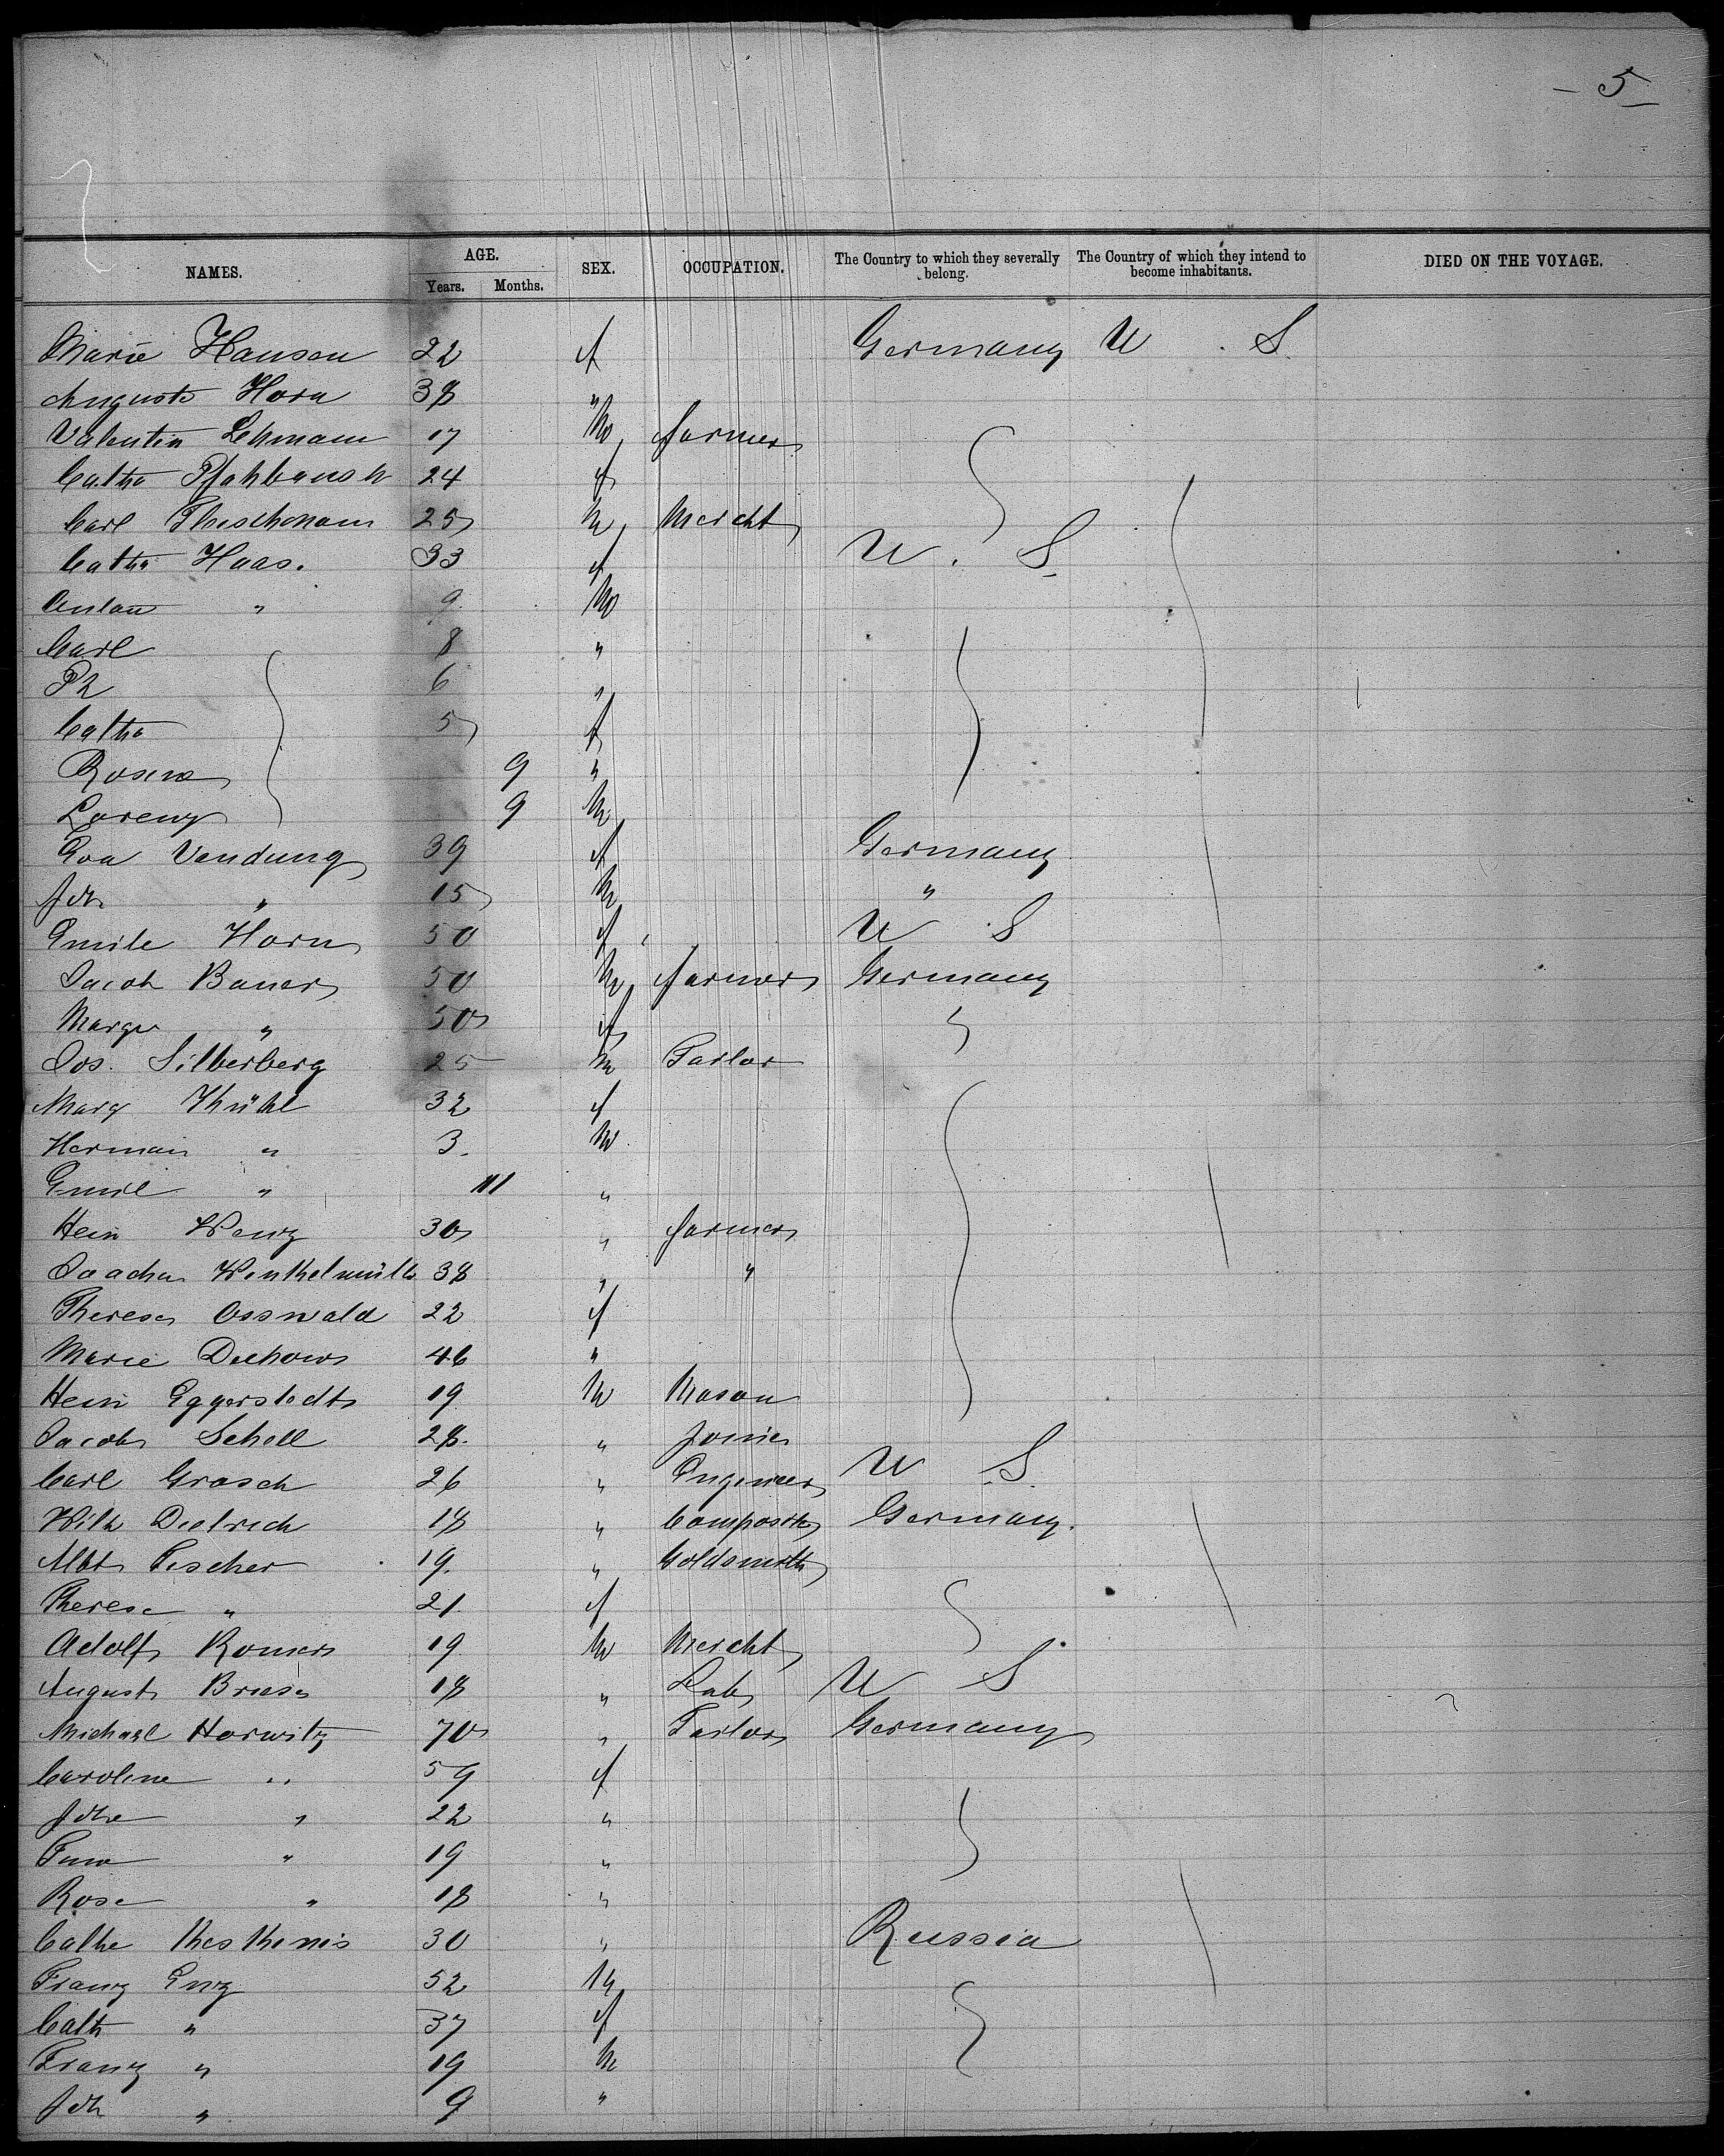 - 5 -
NAMES. AGE. SEX. OCCUPATION. The Country to which they severally belong. The Country of which they intend to become inhabitants. DIED ON THE VOYAGE.
Years. Months.
Marie Hansen 22 f Germany U. S.
Auguste Horn 38 "
Valentin Lehmann 17 M farmer
Catha 24 f
Carl 25 M Mercht
Catha Haas. 33 f U. S.
Anton " 9 M
Carl 8 "
Ph 6 "
Catha 5 f
Rosina 9 "
Lorenz 9 M
Eva Vendung 39 f Germany
Joh " 15 M "
Emile Horn 50 f U S
Jacob Bauer 50 M farmer Germany
Margr " 50 f
Jos. Silberberg 25 m Tailor
Marg Kühl 32 f
Herman " 3. M
Emil " 11 "
Hein Wenz 30 " farmer
Joachim Winkelmüller 38 " "
Therese Osswald 22 f
Marie Dechow 46 "
Hein Eggerstedt 19 M Mason
Jacob Scholl 28. " Joiner
Carl Grosch 26 " Engineer U S.
Wilh Dietrich 18 " Compositor Germany.
Albt Fischer 19. " Goldsmith
Therese " 21 f
Adolf Romer 19 M Mercht
August Briese 18 " Lab U S
Michael Horwitz 70 " Tailor Germany
Caroline " 59 f
Johe " 22 "
" 19 "
Rosa " 18 "
Cathe 30 " Russia
Franz Enz 52 M
Cath " 37 f
Franz " 19 M
Joh " 9 "